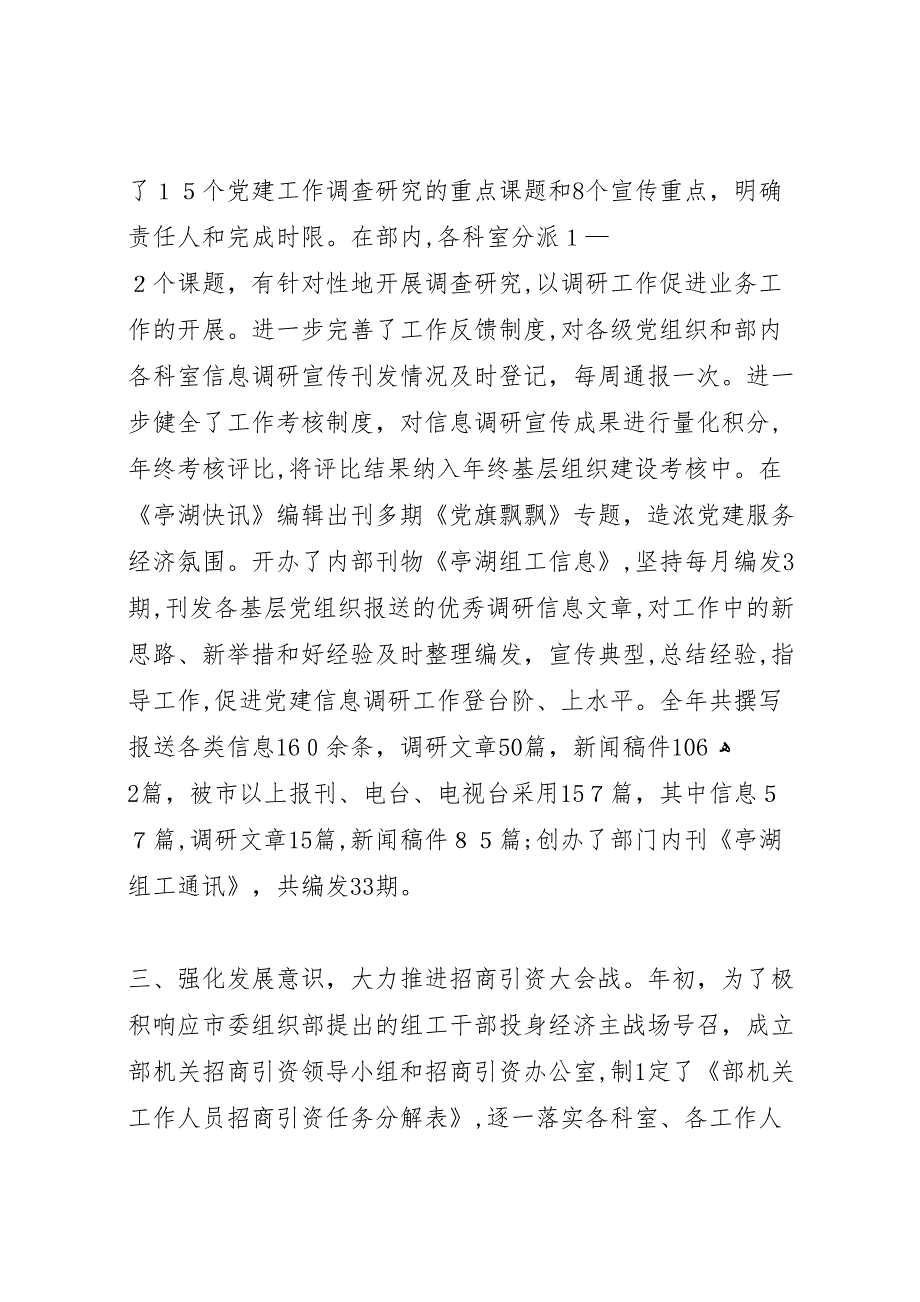 了１５个党建工作调查研究的重点课题和8个宣传重点，明确
责任人和完成时限。在部内,各科室分派１—
２个课题，有针对性地开展调查研究,以调研工作促进业务工
作的开展。进一步完善了工作反馈制度,对各级党组织和部内
各科室信息调研宣传刊发情况及时登记，每周通报一次。进一
步健全了工作考核制度，对信息调研宣传成果进行量化积分,
年终考核评比,将评比结果纳入年终基层组织建设考核中。在
《亭湖快讯》编辑出刊多期《党旗飘飘》专题，造浓党建服务
经济氛围。开办了内部刊物《亭湖组工信息》,坚持每月编发3
期,刊发各基层党组织报送的优秀调研信息文章,对工作中的新
思路、新举措和好经验及时整理编发，宣传典型,总结经验,指
导工作,促进党建信息调研工作登台阶、上水平。全年共撰写
报送各类信息16０余条，调研文章50篇，新闻稿件106ﻩ
2篇，被市以上报刊、电台、电视台采用15７篇，其中信息５
７篇,调研文章15篇,新闻稿件８５篇;创办了部门内刊《亭湖
组工通讯》，共编发33期。
三、强化发展意识，大力推进招商引资大会战。年初，为了极
积响应市委组织部提出的组工干部投身经济主战场号召，成立
部机关招商引资领导小组和招商引资办公室,制1定了《部机关
工作人员招商引资任务分解表》,逐一落实各科室、各工作人